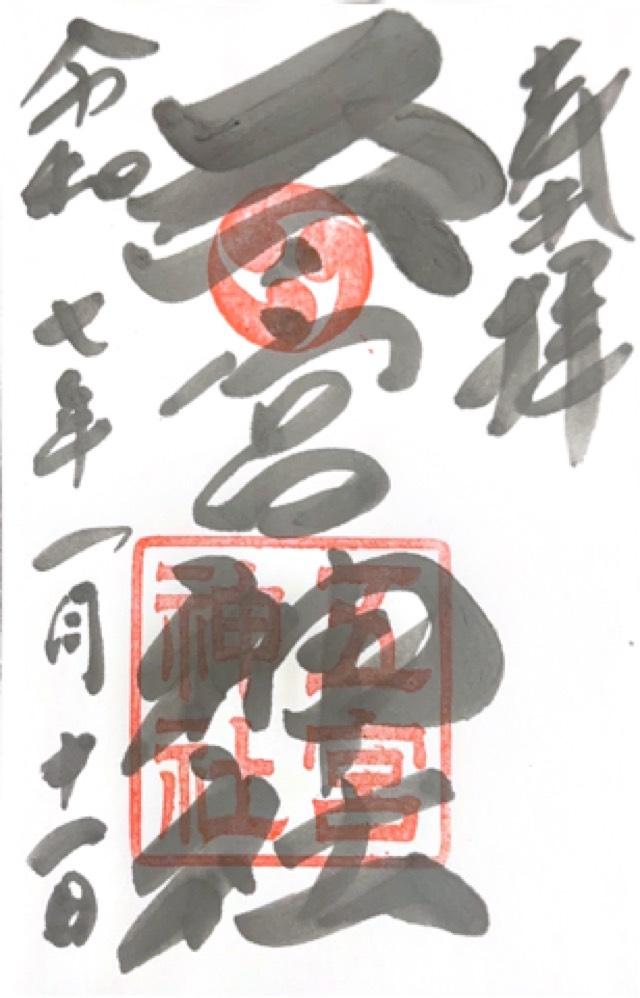 奉拝
五宮神社
五宮
神社
令和七年一月十一日